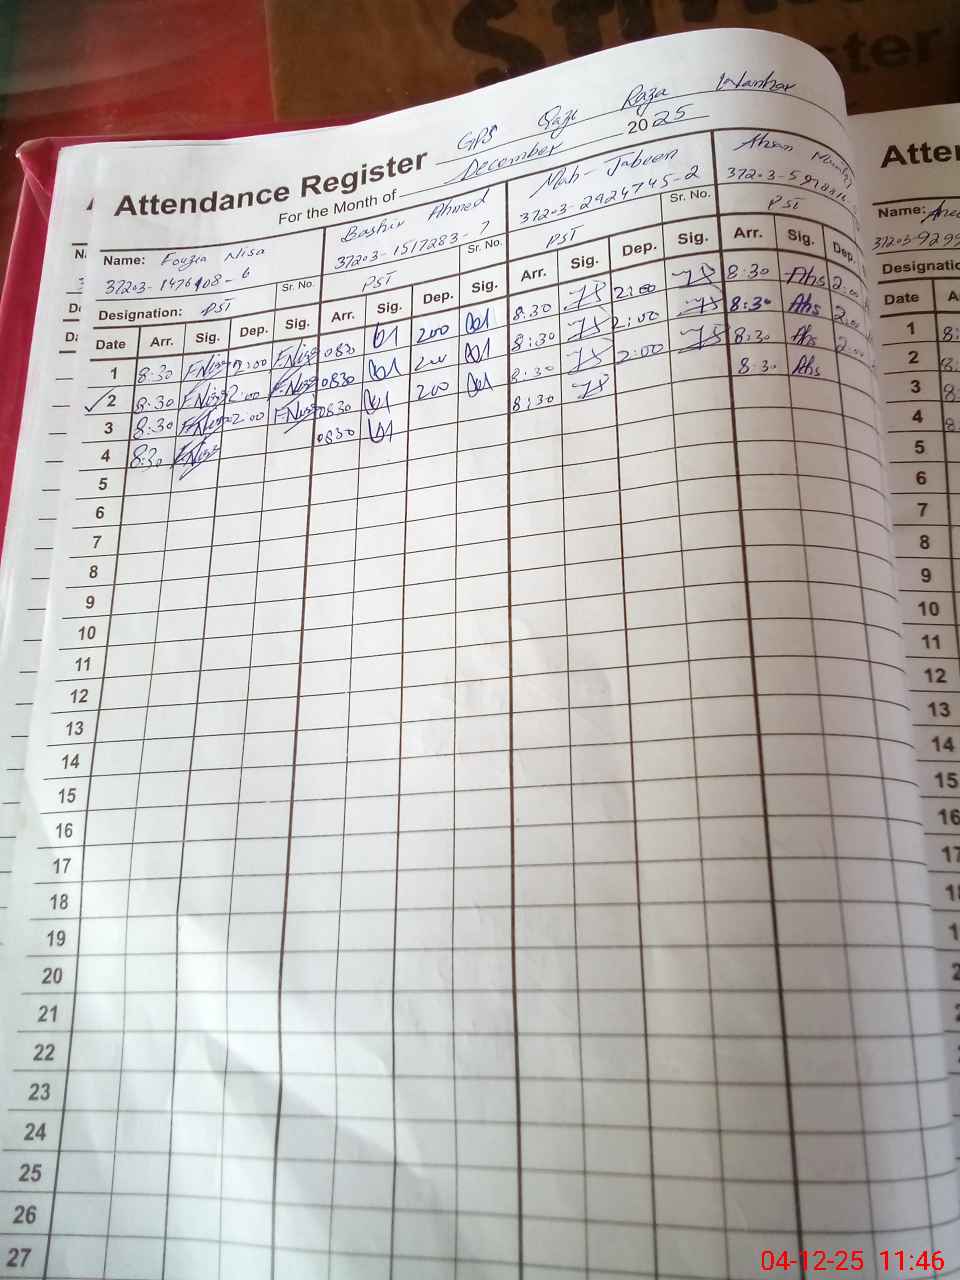 ster
GPS Qazi Raza Wanhar
Attendance Register
For the Month of December 2025
Name: Fouzia Nisa
Bashir Ahmed
Mah-Jabeen
Ahsan
37203-1517283-7
37203-2924745-2
Sr. No. Sr. No. Sr. No.
Designation: PST
PST
PST
PST
Date Arr. Sig. Dep. Sig. Arr. Sig. Dep. Sig. Arr. Sig. Dep. Sig. Arr. Sig. Dep.
1 8:30 F.Nisa 2:00 F.Nisa 0830 200 8:30 2:00 8:30 Ahs 2:00
2 8:30 F.Nisa 2:00 F.Nisa 0830 200 8:30 2:00 8:30 Ahs 2:00
3 8:30 F.Nisa 2:00 F.Nisa 0830 200 8:30 2:00 8:30 Ahs 2:00
4 8:30 F.Nisa 0830 8:30 8:30 Ahs
5
6
7
8
9
10
11
12
13
14
15
16
17
18
19
20
21
22
23
24
25
26
27
Atten
Name:
Designatio
Date A
1 8:
2 8:
3 8
4 8
5
6
7
8
9
10
11
12
13
14
15
16
17
04-12-25 11:46